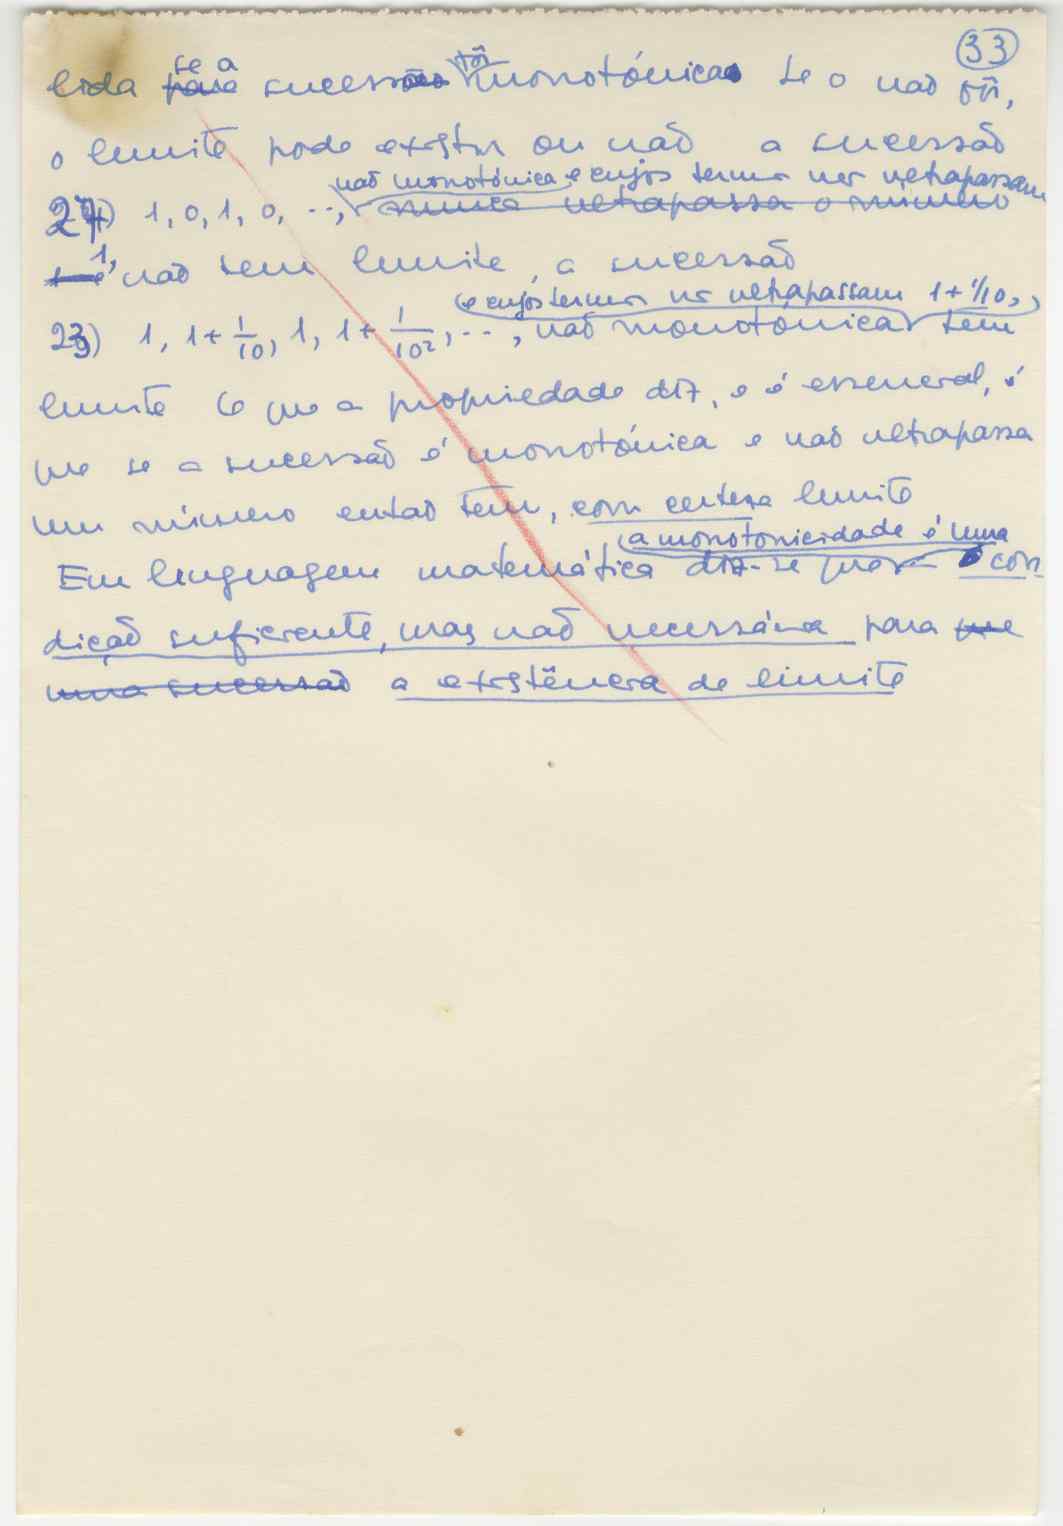 33
lida se a sucessão fôr monotónica se o não fôr,
o limite pode existir ou não a sucessão
não monotónica e cujos termos não ultrapassam
1, 0, 1, 0, ..., nunca ultrapassa o número
1, não tem limite, a sucessão
(e cujos termos não ultrapassam 1+1/10,)
23) 1, 1+1/10, 1, 1+1/10², ..., não monotónica tem
limite O que a propriedade diz, e é essencial, é
que se a sucessão é monotónica e não ultrapassa
um número então tem, com certeza limite
a monotonicidade é uma
Em linguagem matemática diz-se que con
dição suficiente, mas não necessária para que
uma sucessão a existência de limite